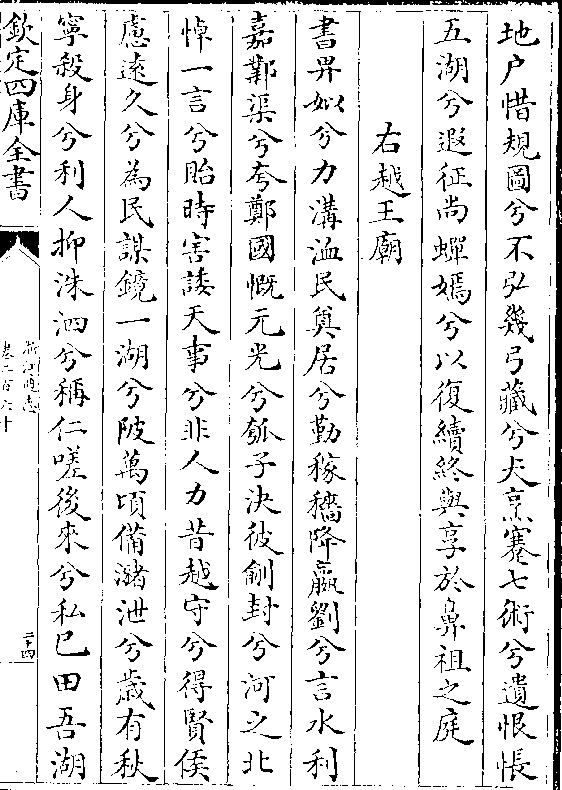 地户惜規圖兮不弘㡬弓藏兮犬烹蹇七術兮遺恨悵
五湖兮遐征尚蟬嫣兮以復續終與享於鼻祖之庭
右越王廟
書畀姒兮力溝洫民奠居兮勤稼穡降嬴劉兮言水利
嘉鄴渠兮夸鄭國慨元光兮瓠子決彼鄃封兮河之北
悼一言兮貽時害諉天事兮非人力昔越守兮得賢侯
慮遠久兮為民謀鏡一湖兮陂萬頃備瀦泄兮歲有秋
寧殺身兮利人抑洙泗兮稱仁嗟後來兮私已田吾湖
欽定四庫全書
浙江通志
卷二百六十
二十四